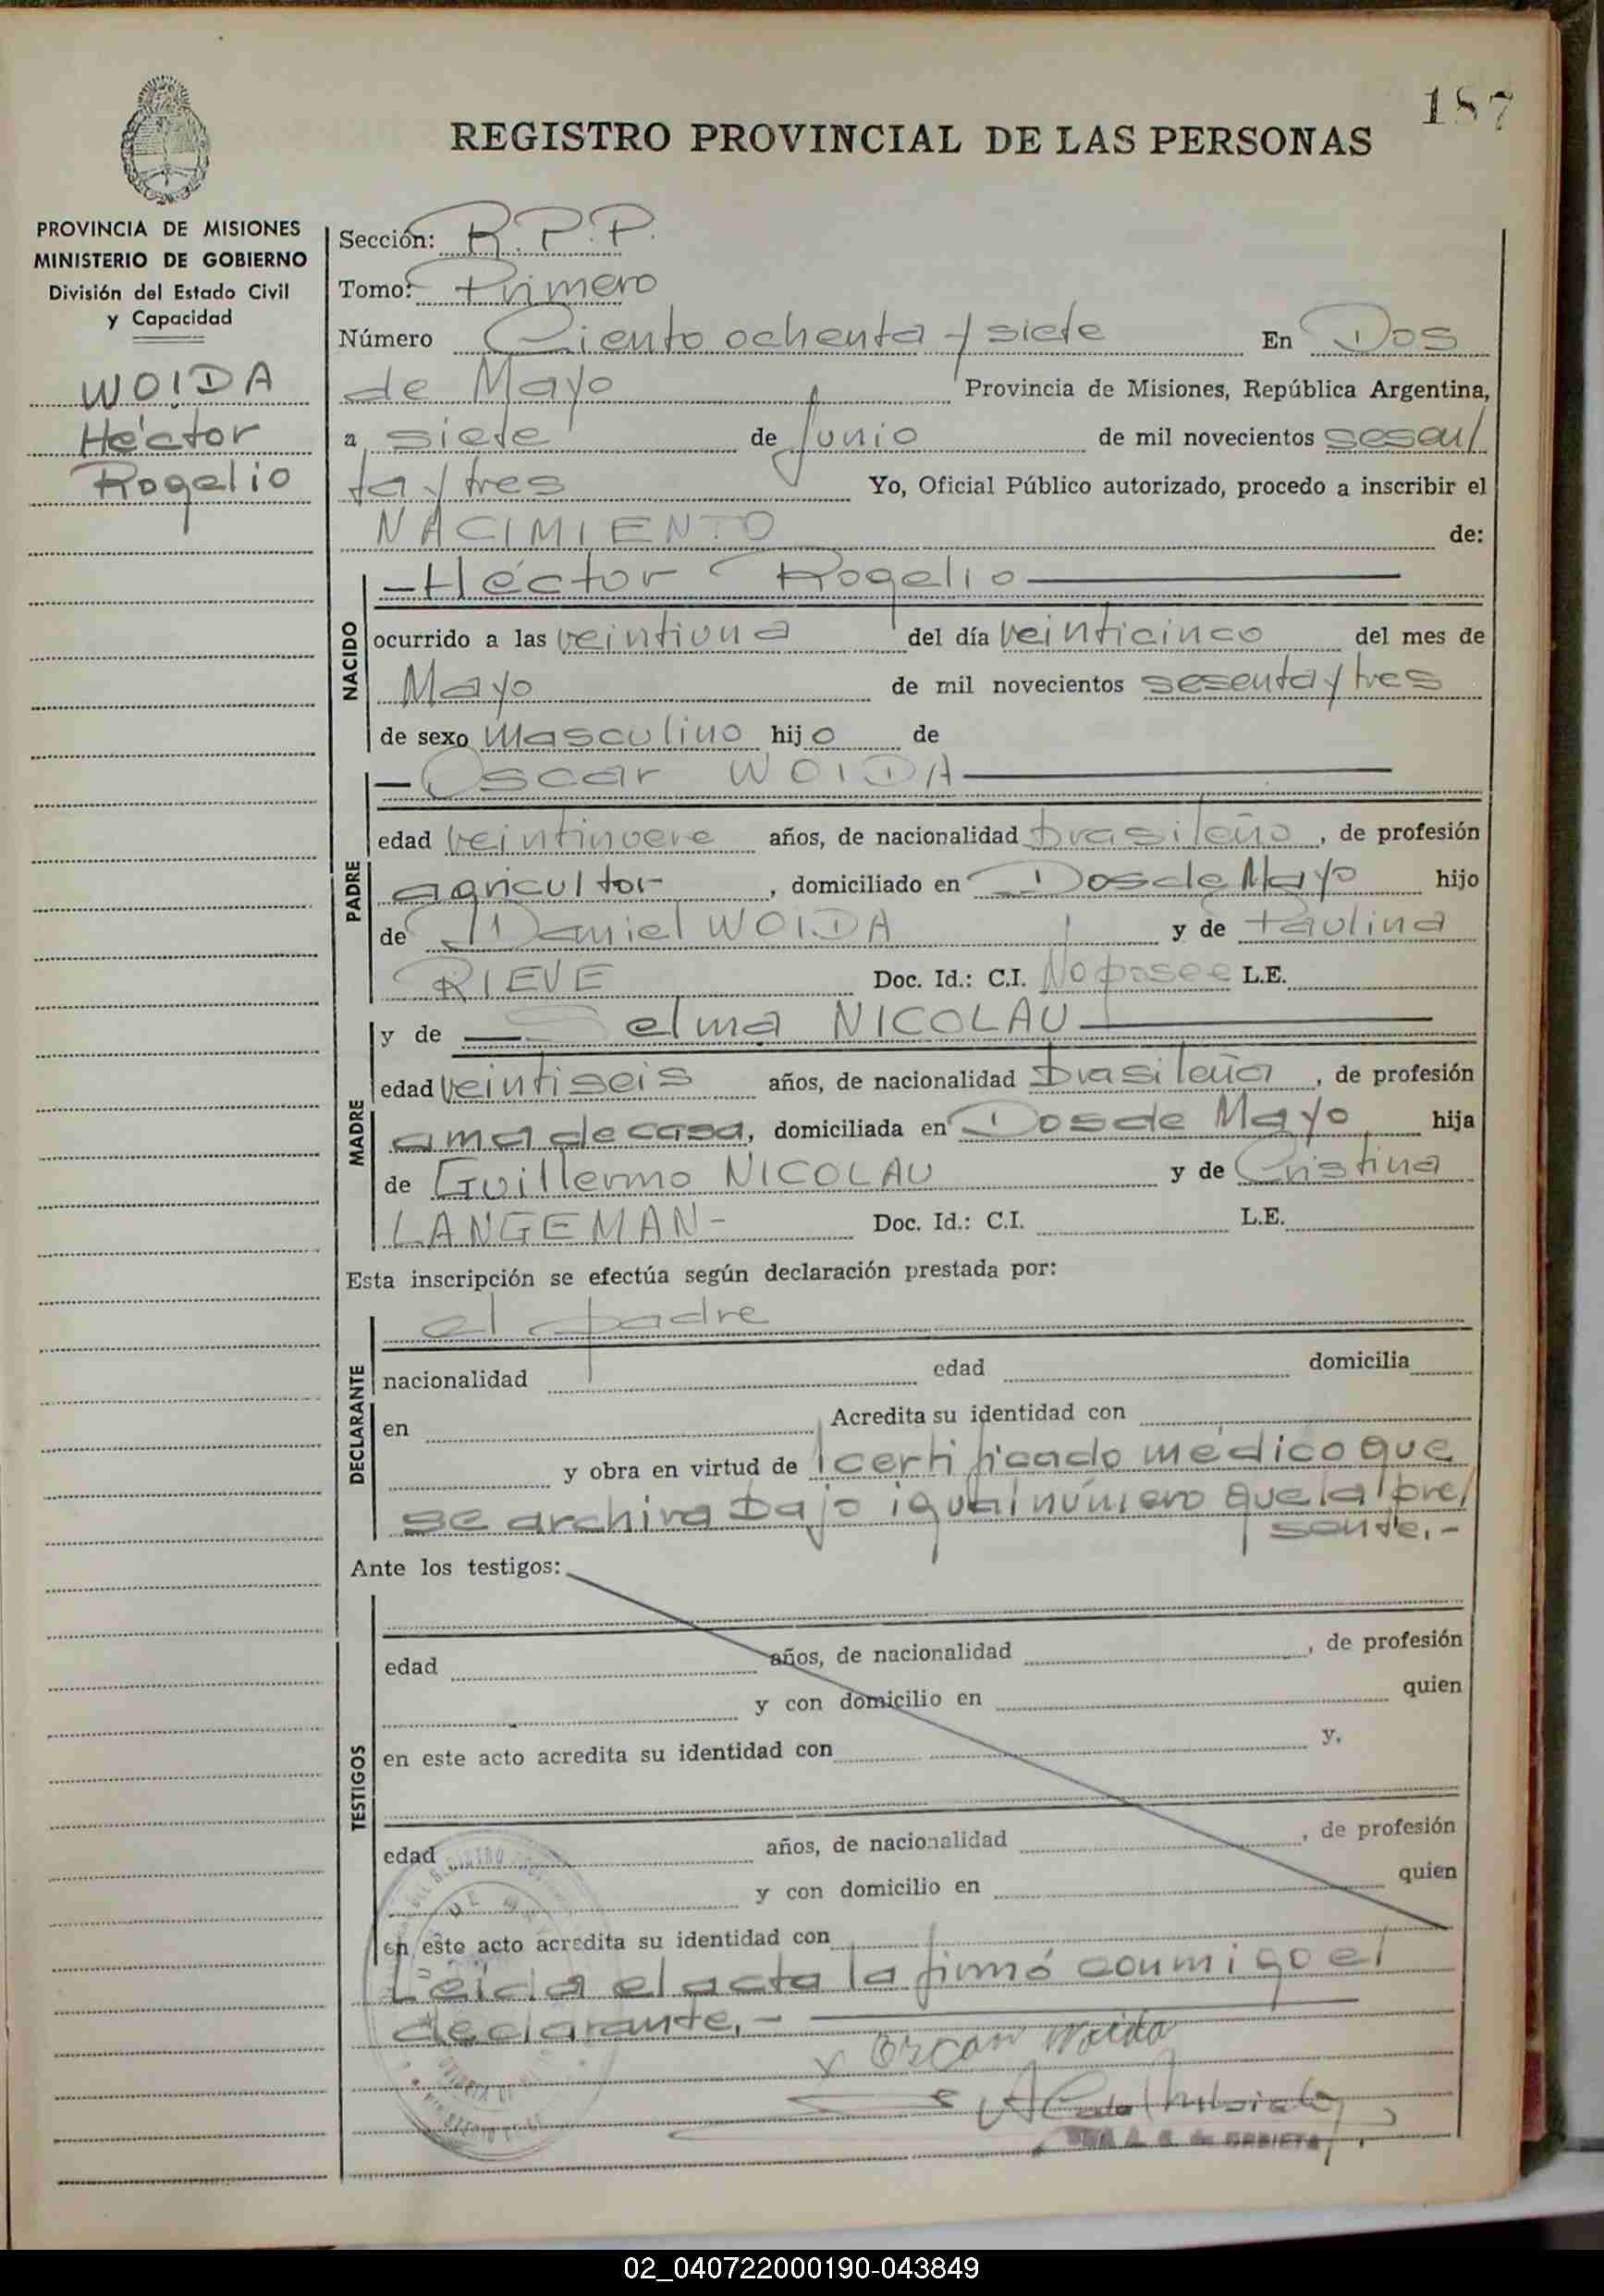 187
REGISTRO PROVINCIAL DE LAS PERSONAS
PROVINCIA DE MISIONES
MINISTERIO DE GOBIERNO
División del Estado Civil
y Capacidad
WOIDA
Héctor
Rogelio
Sección: R.P.P.
Tomo: Primero
Número Ciento ochenta y siete En Dos
de Mayo Provincia de Misiones, República Argentina,
a siete de junio de mil novecientos sesen/
ta y tres Yo, Oficial Público autorizado, procedo a inscribir el
NACIMIENTO de:
NACIDO
—Héctor Rogelio—
ocurrido a las veintiuna del día veinticinco del mes de
Mayo de mil novecientos sesenta y tres
de sexo masculino hijo de
PADRE
— Oscar WOIDA—
edad veintinueve años, de nacionalidad brasileño, de profesión
agricultor, domiciliado en Dos de Mayo hijo
de Daniel WOIDA y de Paulina
RIEVE Doc. Id.: C.I. No posee L.E.
MADRE
y de — Selma NICOLAU—
edad veintiseis años, de nacionalidad brasileña, de profesión
ama de casa, domiciliada en Dos de Mayo hija
de Guillermo NICOLAU y de Cristina
LANGEMAN- Doc. Id.: C.I. L.E.
Esta inscripción se efectúa según declaración prestada por:
DECLARANTE
el padre
nacionalidad edad domicilia
en Acredita su identidad con
y obra en virtud de certificado médico que
se archiva bajo igual número que la pre/
sente.-
Ante los testigos:
TESTIGOS
edad años, de nacionalidad , de profesión
y con domicilio en quien
en este acto acredita su identidad con y,
edad años, de nacionalidad , de profesión
y con domicilio en quien
en este acto acredita su identidad con
Leída el acta la firmó conmigo el
declarante.-
x Oscar Woida
02_040722000190-043849